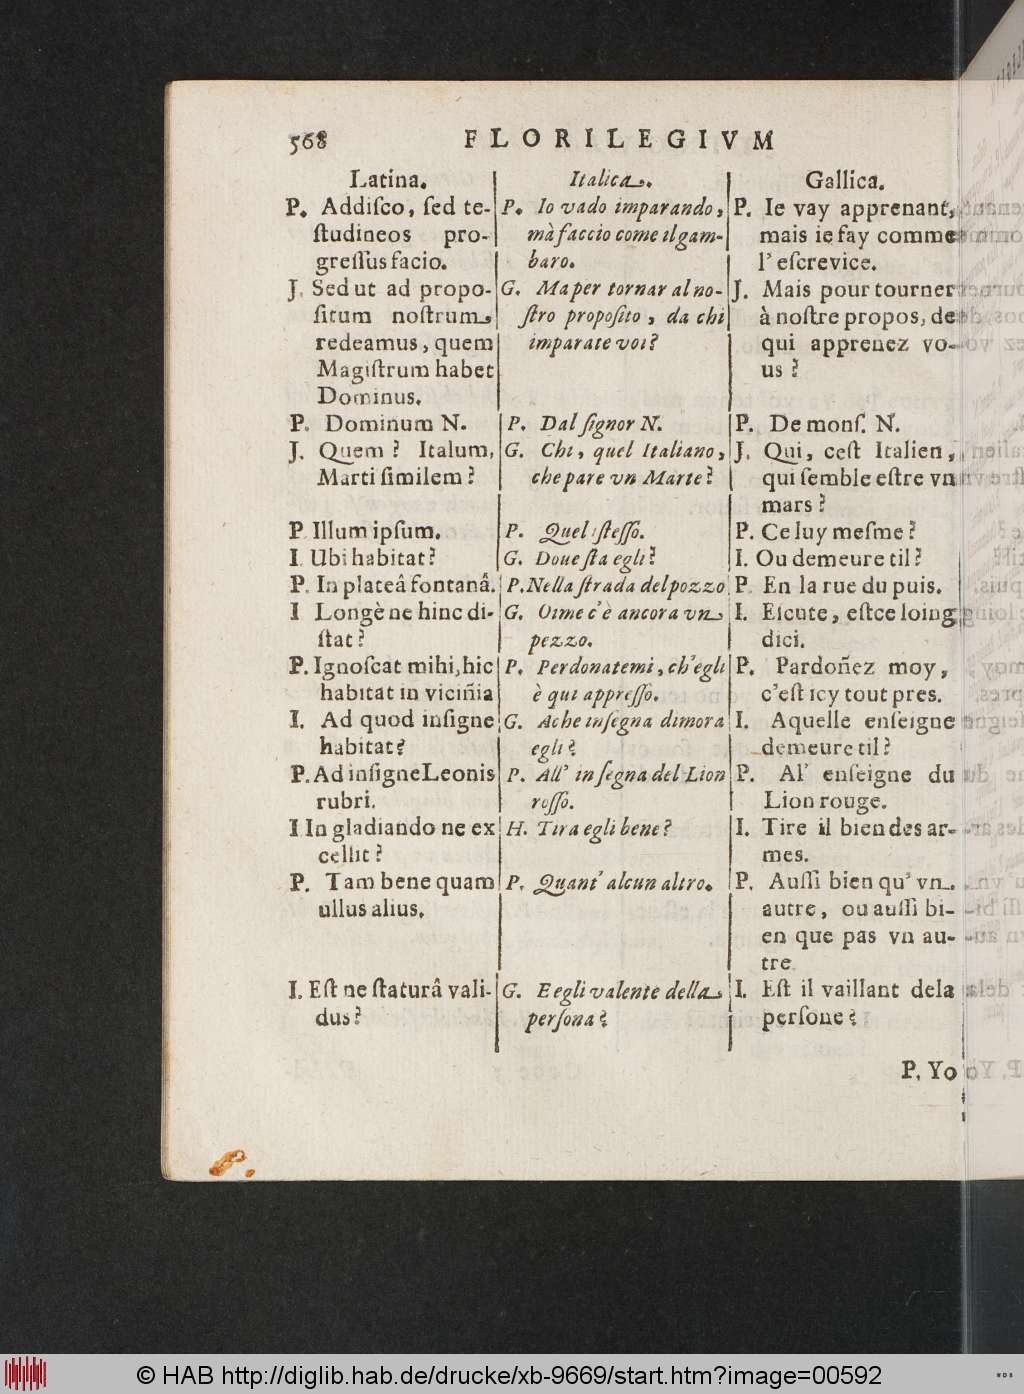 568 FLORILEGIVM
Latina.
P. Addiſco, ſed te-
ſtudineos pro-
greſſus facio.
J. Sed ut ad propo-
ſitum noſtrum,
redeamus, quem
Magiſtrum habet
Dominus.
P. Dominum N.
J. Quem? Italum,
Marti ſimilem?
P. Illum ipſum.
I. Ubi habitat?
P. In plateâ fontanâ.
I Longè ne hinc di-
ſtat?
P. Ignoſcat mihi, hic
habitat in viciñia
I. Ad quod inſigne
habitat?
P. Ad inſigne Leonis
rubri.
I In gladiando ne ex
cellit?
P. Tam bene quam
ullus alius.
I. Eſt ne ſtaturâ vali-
dus?
Italica.
P. Io vado imparando,
mà faccio come il gam-
baro.
G. Ma per tornar al no-
ſtro propoſito, da chi
imparate voi?
P. Dal ſignor N.
G. Chi, quel Italiano,
che pare vn Marte?
P. Quel iſteſſo.
G. Doue ſta egli?
P. Nella ſtrada del pozzo
G. Oime c'è ancora vn
pezzo.
P. Perdonatemi, ch'egli
è qui appreſſo.
G. A che inſegna dimora
egli?
P. All' inſegna del Lion
roſſo.
H. Tira egli bene?
P. Quant' alcun altro.
G. E egli valente della
perſona?
Gallica.
P. Ie vay apprenant,
mais ie fay comme
l' eſcrevice.
J. Mais pour tourner
à noſtre propos, de
qui apprenez vo-
us?
P. De monſ. N.
J. Qui, ceſt Italien,
qui ſemble eſtre vn
mars?
P. Ce luy meſme?
I. Ou demeure til?
P. En la rue du puis.
I. Eſcute, eſtce loing
dici.
P. Pardoñez moy,
c'eſt icy tout pres.
I. Aquelle enſeigne
demeure til?
P. Al' enſeigne du
Lion rouge.
I. Tire il bien des ar-
mes.
P. Auſſi bien qu' vn
autre, ou auſſi bi-
en que pas vn au-
tre.
I. Eſt il vaillant dela
perſone?
P. Yo
© HAB http://diglib.hab.de/drucke/xb-9669/start.htm?image=00592